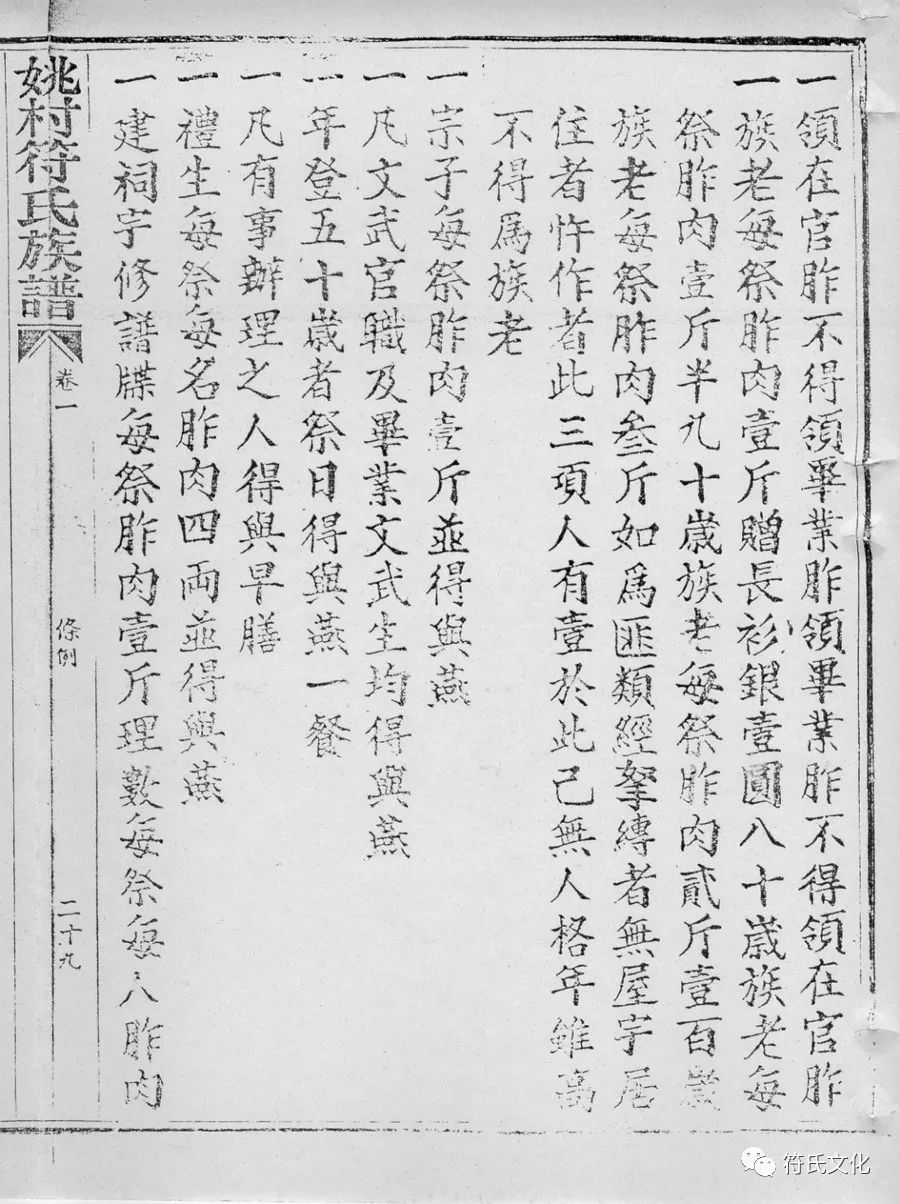 一領在官胙不得領畢業胙領畢業胙不得領在官胙
一族老每祭胙肉壹斤贈長衫銀壹圓八十歲族老每
祭胙肉壹斤半九十歲族老每祭胙肉貳斤壹百歲
族老每祭胙肉叁斤如爲匪類經拏縛者無屋宇居
住者忤作者此三項人有壹於此己無人格年雖高
不得爲族老
一宗子每祭胙肉壹斤並得與燕
一凡文武官職及畢業文武生均得與燕
一年登五十歲者祭日得與燕一餐
一凡有事辦理之人得與早膳
一禮生每祭每名胙肉四両並得與燕
一建祠宇修譜牒每祭胙肉壹斤理數每祭每人胙肉
姚村符氏族譜 卷一 條例 二十九
符氏文化